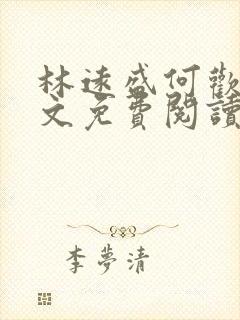 林遠盛何歡
文免費閱讀
李夢清